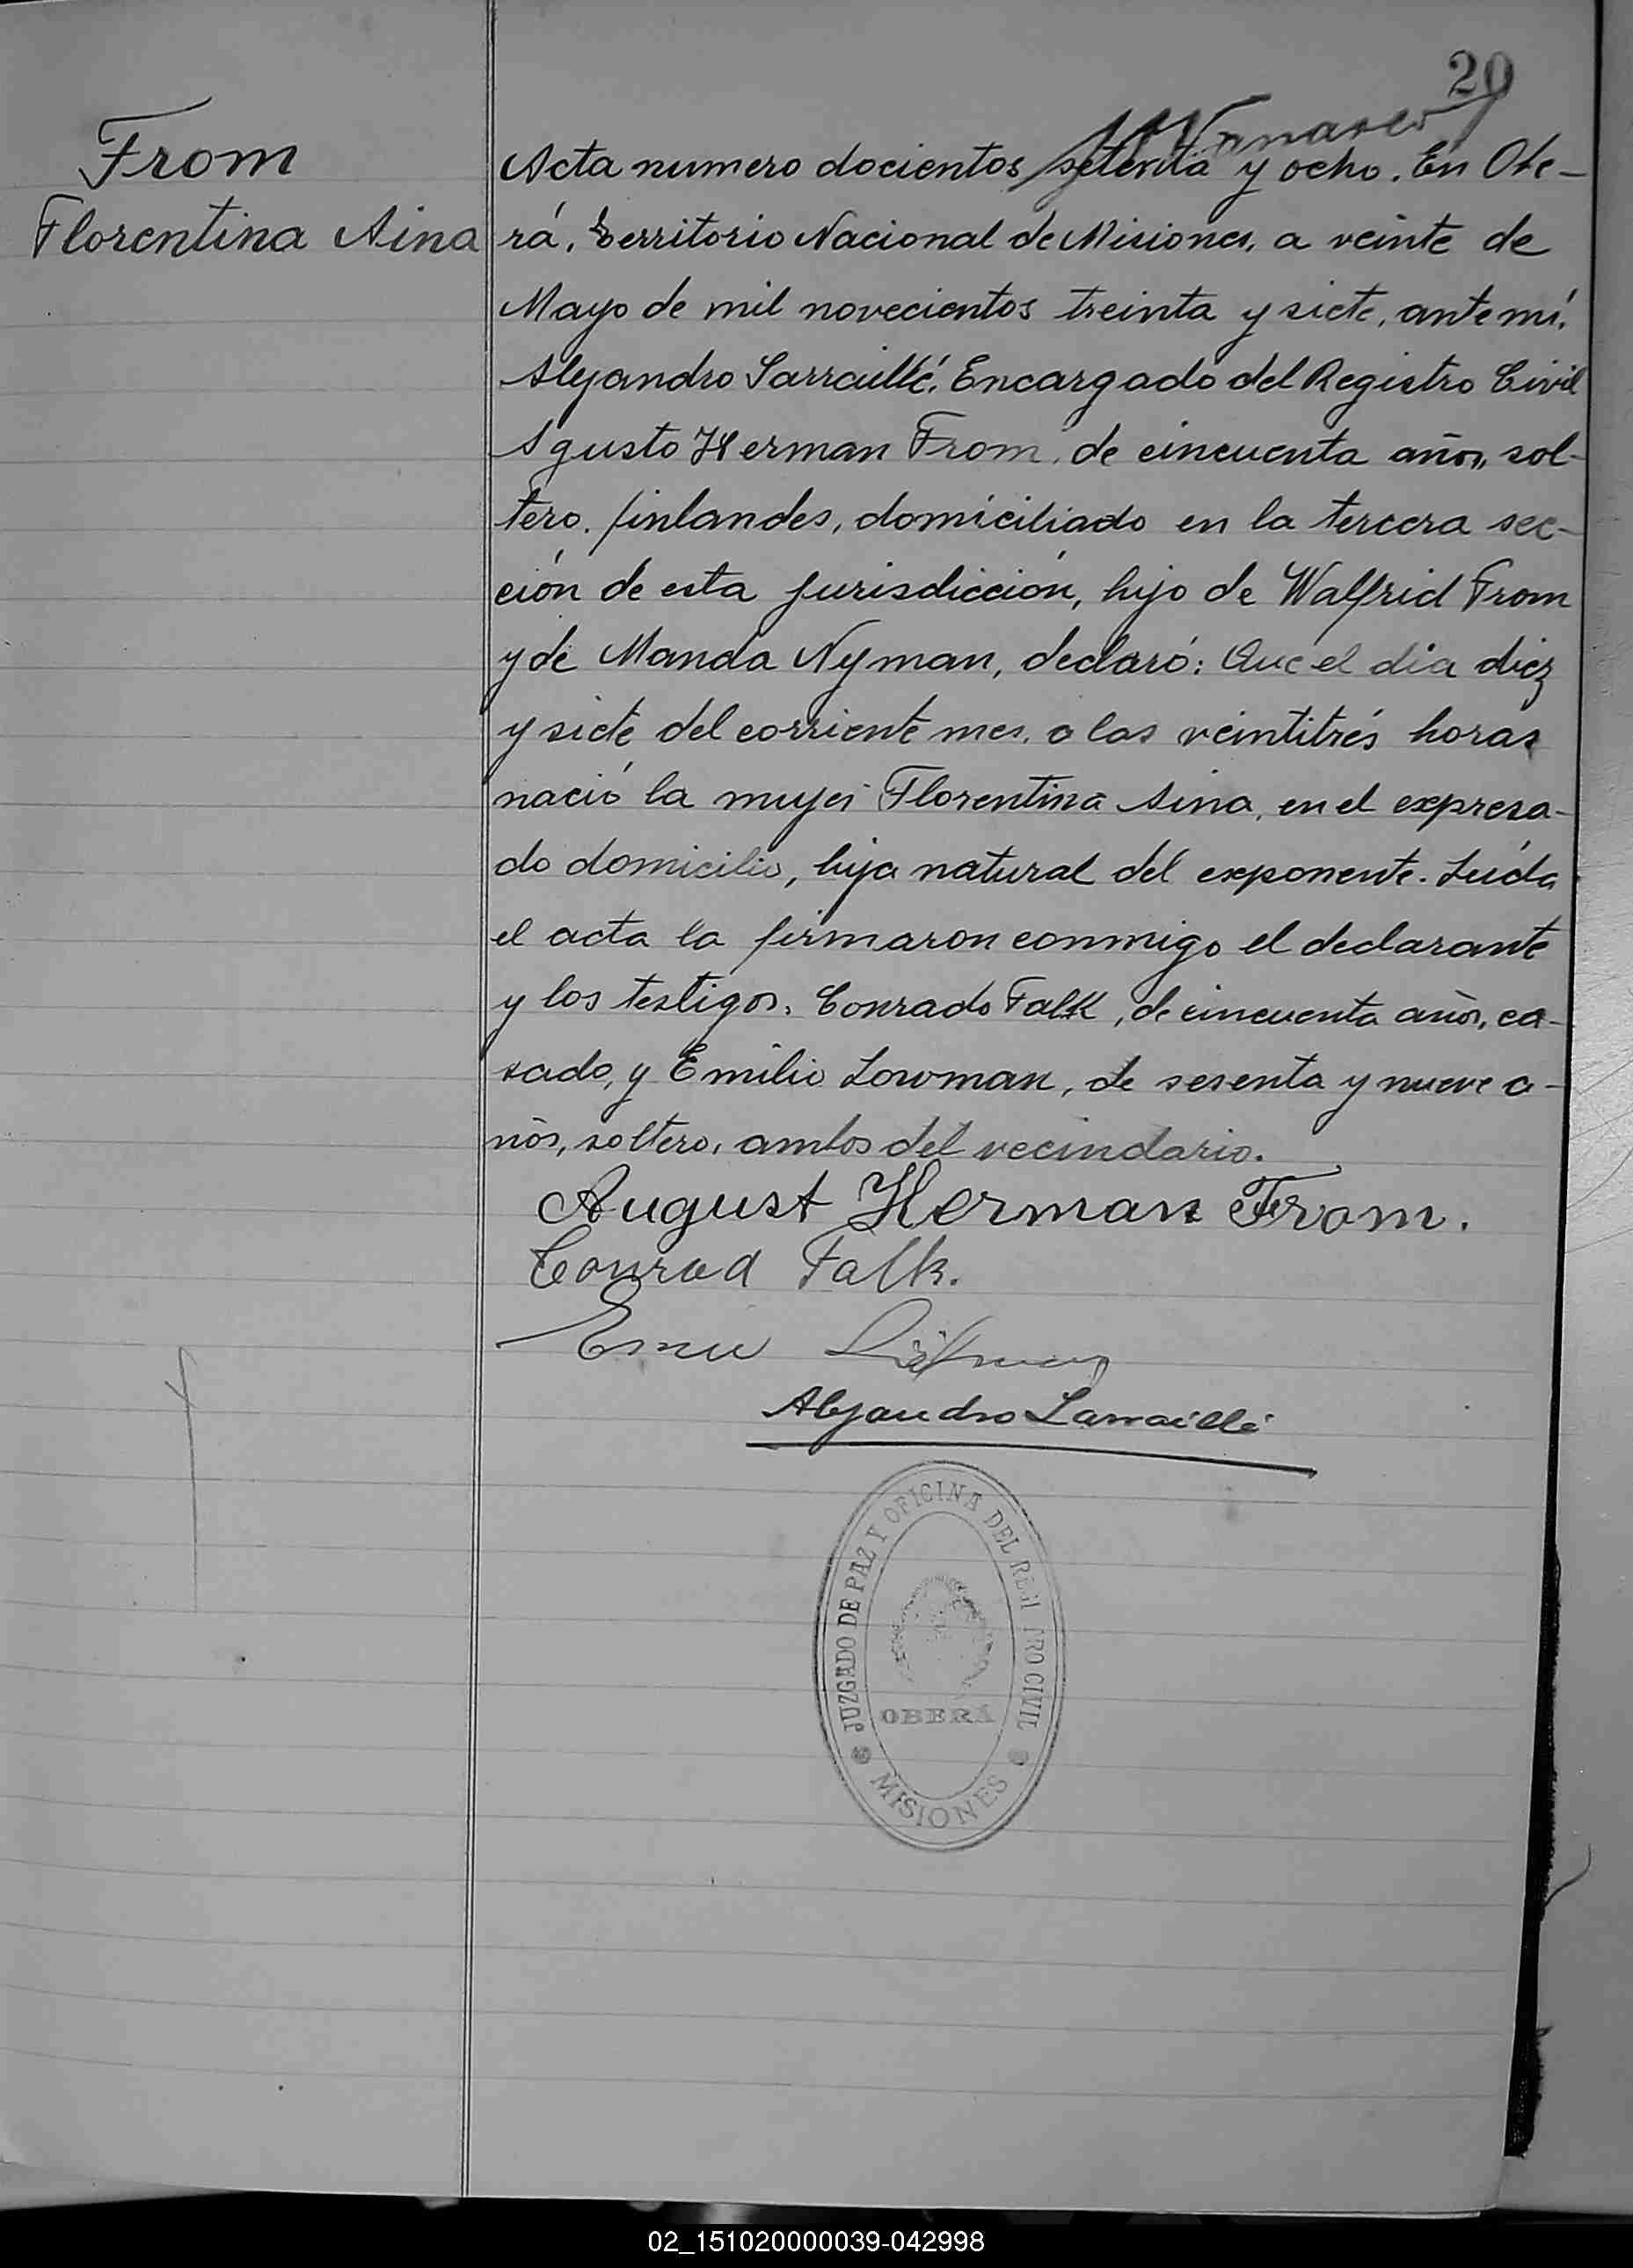 20
From
Florentina Aina
Acta numero docientos setenta y ocho. En Obe-
rá, Territorio Nacional de Misiones, a veinte de
Mayo de mil novecientos treinta y siete, ante mí,
Alejandro Sarraillé, Encargado del Registro Civil
Agusto Herman From, de cincuenta años, sol-
tero, finlandes, domiciliado en la tercera sec-
ción de esta jurisdicción, hijo de Walfrid From
y de Manda Nyman, declaró: Que el dia diez
y siete del corriente mes, a las veintitrés horas
nació la mujer Florentina Aina, en el expresa-
do domicilio, hija natural del exponente. Leída
el acta la firmaron conmigo el declarante
y los testigos, Conrado Falk, de cincuenta años, ca-
sado, y Emilio Lowman, de sesenta y nueve a-
ños, soltero, ambos del vecindario.
August Herman From.
Conrad Falk.
Alejandro Sarraillé
JUZGADO DE PAZ Y OFICINA DEL REGISTRO CIVIL
OBERA
MISIONES
02_151020000039-042998